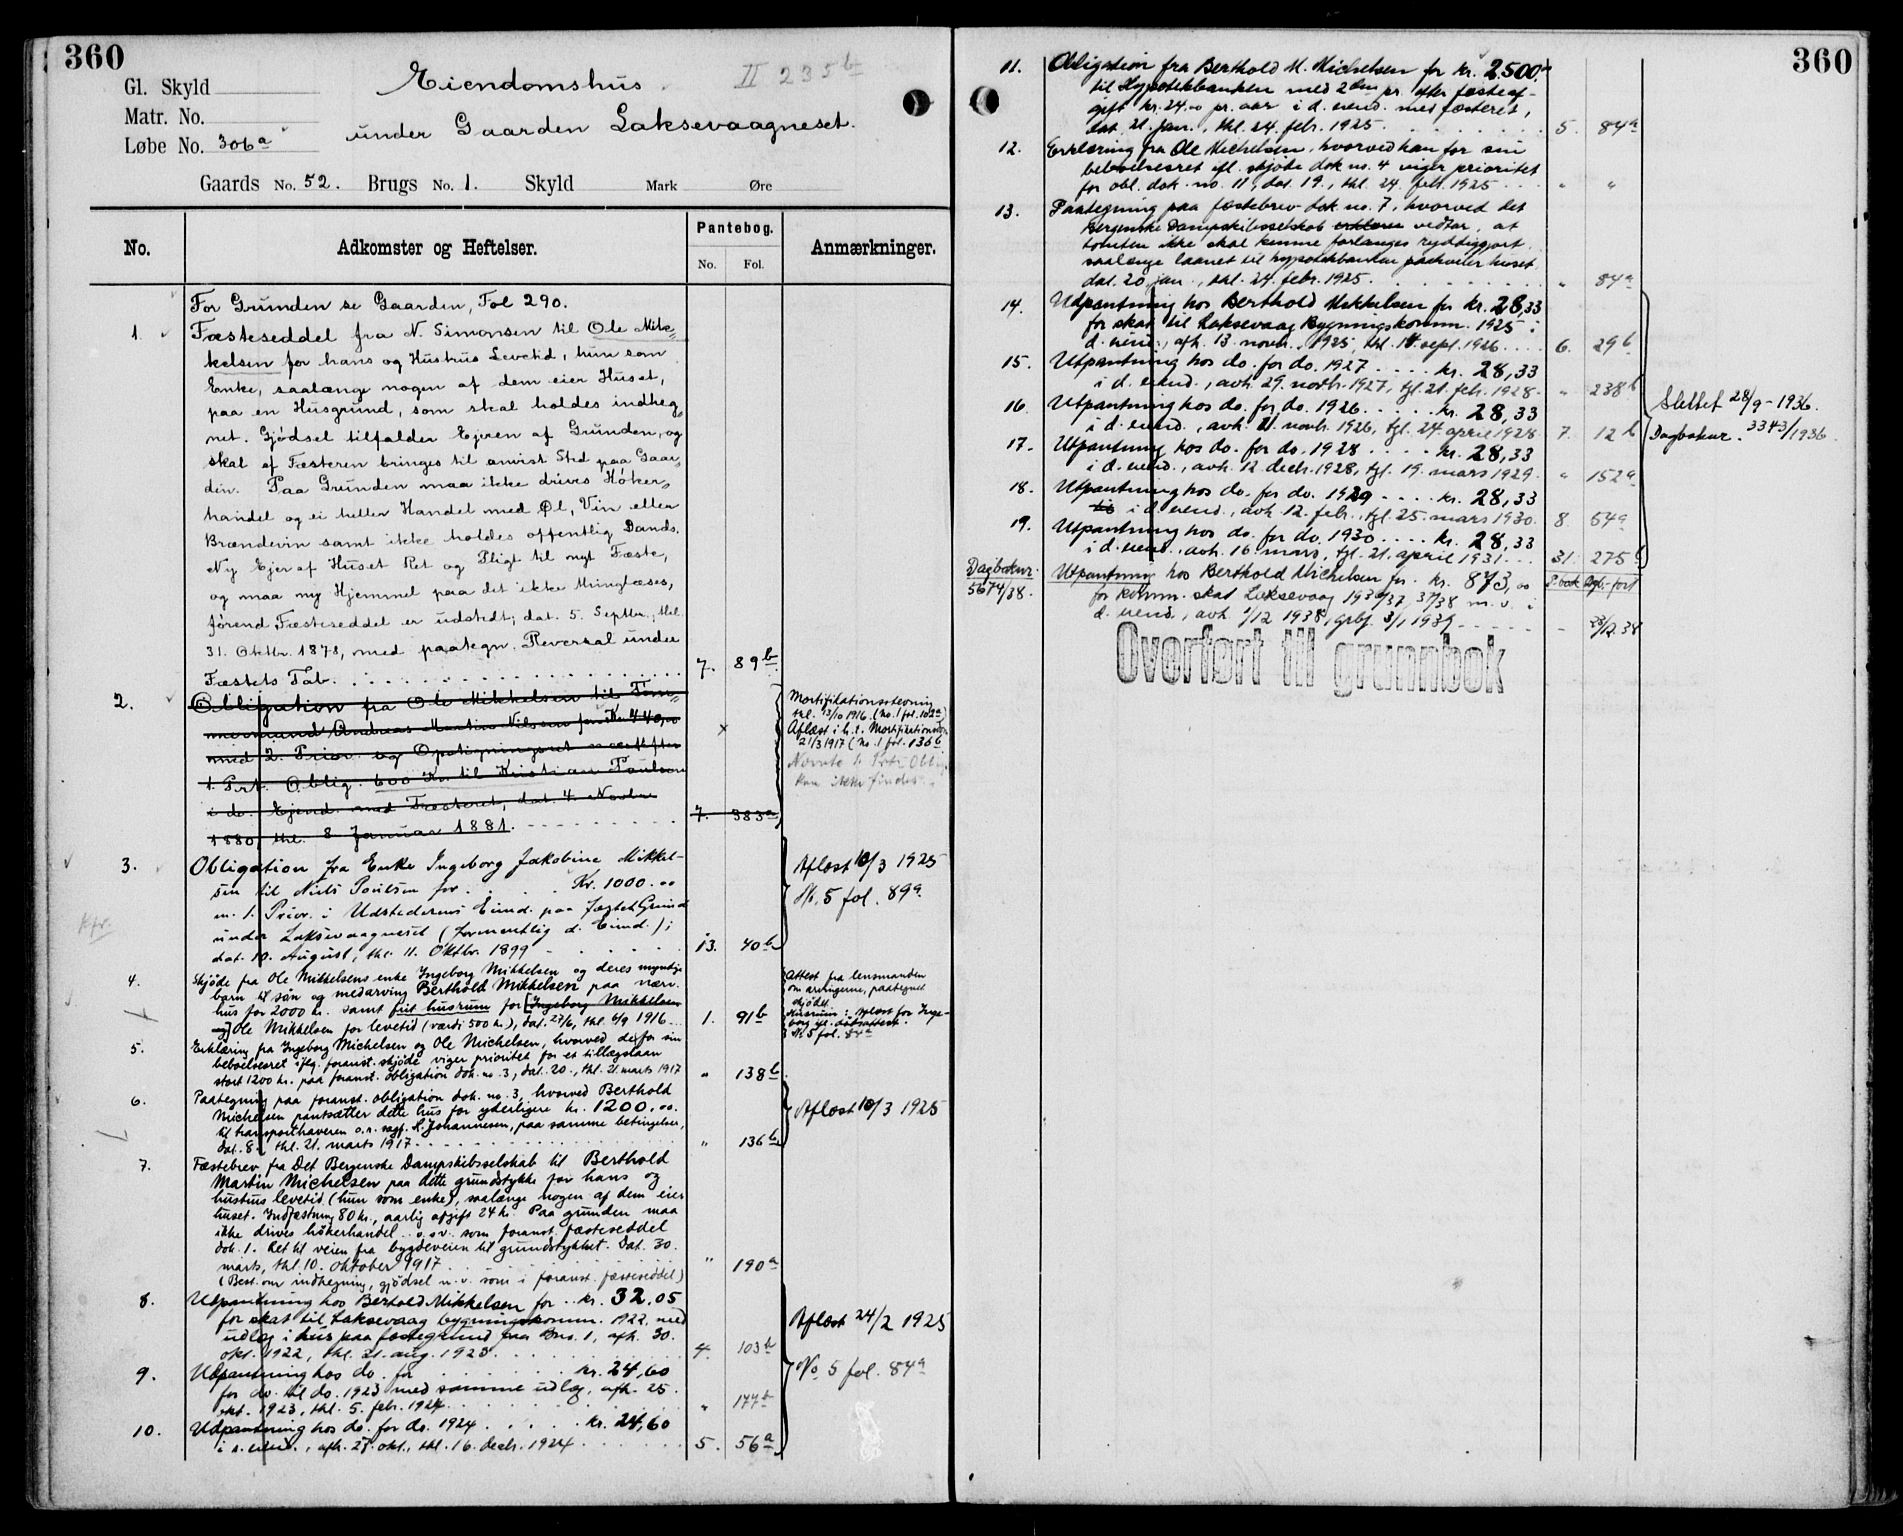 360
Gl. Skyld
Matr. No.
Løbe No. 306a
Eiendomshus
II 235b
under Gaarden Laksevaagneset.
Gaards No. 52. Brugs No. 1. Skyld Mark Øre
No. Adkomster og Heftelser. Pantebog. Anmærkninger.
No. Fol.
For Grunden se Gaarden, Fol 290.
1. Fæsteseddel fra N. Simonsen til Ole Mik-
kelsen for hans og Hustrus Levetid, hun som
Enke, saalænge nogen af dem eier Huset,
paa en Husgrund, som skal holdes indheg-
net. Gjødsel tilfalder Ejeren af Grunden, og
skal af Fæsteren bringes til anvist Sted paa Gaar-
den. Paa Grunden maa ikke drives Høker-
handel og ei heller Handel med Øl, Vin eller
Brændevin samt ikke holdes offentlig Dands.
Ny Ejer af Huset Ret og Pligt til nyt Fæste,
og maa ny Hjemmel paa det ikke thinglæses,
førend Fæsteseddel er udstedt; dat. 5. Septbr., thl.
31. Oktbr. 1878, med paategn. Reversal under
Fæstets Tab. 7. 89b
2. Obligation fra Ole Mikkelsen til Tøm-
mermand Andreas Martin Nilsen for Kr. 440,00
med 2. Prior. og Opsigningsret næst efter
1 Prt. Oblig. 600 Kr. til Kristian Poulsen
i do. Ejend. med Fæsteret, dat. 4. Novbr
1880, thl. 8 Januar 1881. 7. 383a
Mortifikationsstevning
thl. 13/10 1916. (No. 1 fol. 102a)
Aflæst i h. t. Mortifikationsdom
21/3 1917 (No. 1 fol. 136b
Nævnte 1. Prt. Oblig.
kan ikke findes.
3. Obligation fra Enke Ingeborg Jakobine Mikkel-
sen til Niels Poulsen for . . . Kr. 1000.00
m. 1. Prior. i Udstederens Eiend. paa fæstet Grund
under Laksevaagneset (formentlig d. Eiend.);
dat. 10. August, thl. 11. Oktbr. 1899 13. 40b
Aflæst 10/3 1925
No. 5 fol. 89a
Kfr.
4. Skjøde fra Ole Mikkelsens enke Ingeborg Mikkelsen og deres myndige
barn til søn og medarving Berthold Mikkelsen paa nærv.
hus for 2000 kr. samt frit husrum for [Ingeborg Mikkelsen
og] Ole Mikkelsen for levetid (værdi 500 kr.), dat. 27/6, thl. 6/9 1916 1. 91b
Attest fra lensmanden
om arvingerne, paategnet
skjødet.
Husrum: Aflæst for Inge-
borg ifl. dødsattest.
No 5 fol. 84a
5. Erklæring fra Ingeborg Michelsen og Ole Michelsen, hvorved de for sin
beboelsesret iflg. foranst. skjøde viger prioritet for et tillægslaan
stort 1200 kr. paa foranst. obligation dok. no. 3, dat. 20., thl. 21. marts 1917 " 138b
6. Paategning paa foranst. obligation dok. no. 3, hvorved Berthold
Michelsen pantsætter dette hus for yderligere kr. 1200.00.
til transporthaveren o.r. sagf. H. Johannesen, paa samme betingelser,
dat. 8., thl. 21. marts 1917 " 136b
Aflæst 10/3 1925
7. Fæstebrev fra Det Bergenske Dampskibsselskab til Berthold
Martin Michelsen paa dette grundstykke for hans og
hustrus levetid (hun som enke), saalænge nogen af dem eier
huset. Indfæstning 80 kr., aarlig afgift 24 kr. Paa grunden maa
ikke drives hökerhandel o.s.v. som foranst. fæsteseddel
dok. 1. Ret til veien fra bygdeveien til grundstykket. Dat. 30.
marts, thl. 10. oktober 1917 " 190a
(Best. om indhegning, gjødsel m.v. som i foranst. fæsteseddel)
8. Udpantning hos Bertold Mikkelsen for .. kr. 32.05
for skat til Laksevaag bygningskomm. 1922, med
udlæg i hus paa fæstegrund fra Bno. 1, afh. 30.
okt. 1922, thl. 21. aug. 1923. 4. 103b
Aflæst 24/2 1925
9. Udpantning hos do. for kr. 24,60
for do. til do. 1923 med samme udlæg, afh. 25.
okt. 1923, thl. 5. febr. 1924 " 177b
No 5 fol. 84a
10. Udpantning hos do. for do. 1924 . . . kr. 24,60
i s. eiend., afh. 27. okt., thl. 16. decbr. 1924 5. 56a
360
11. Obligation fra Berthold M. Michelsen for kr. 2500,-
til Hypotekbanken med 2den pr. efter fæsteaf-
gift kr. 24.00 pr. aar i d. eiend. med fæsteret,
dat. 21. jan., thl. 24. febr. 1925. 5. 84a
12. Erklæring fra Ole Michelsen, hvorved han for sin
beboelsesret ifl. skjøde dok no. 4 viger prioritet
for obl. dok. no. 11, dat. 19., thl. 24. febr. 1925 " "
13. Paategning paa fæstebrev dok. no. 7, hvorved det
Bergenske Dampskibsselskab erklærer vedtar, at
tomten ikke skal kunne forlanges ryddiggjort
saalænge laanet til hypotekbanken paahviler huset
dat. 20 jan., thl. 24. febr. 1925. " 84a
14. Udpantning hos Berthold Mikkelsen for kr. 28,33
for skat til Laksevaag Bygningskomm. 1925 i
d. eiend., afh. 13 novbr. 1925, thl. 14. sept. 1926 6. 29b
15. Utpantning hos do. for do. 1927 . . . kr. 28,33
i d. eiend., avh. 29. novbr. 1927, tgl. 21. febr. 1928. " 238b
16. Utpantning hos do. for do. 1926 . . . kr. 28,33
i d. eiend., avh. 11. novbr. 1926, tgl. 24. april 1928 7. 12b
17. Utpantning hos do. for do. 1928 . . . kr. 28,33
i d. eiend., avh. 12. decbr. 1928, tgl. 19. mars 1929 " 152a
18. Utpantning hos do. for do. 1929 . . . kr. 28,33
til i d. eiend., avh. 12. febr., tgl. 25. mars 1930. 8. 54a
19. Utpantning hos do. for do. 1930 . . . kr. 28,33
i d. eiend., avh. 16. mars, tgl. 21. april 1931 31. 275b
Slettet 28/9-1936.
Dagboknr. 3343/1936
Dagboknr.
5674/38.
Utpantning hos Berthold Michelsen for kr. 873,00 P.bok Dgb. ført
for komm. skat Laksevaag 1936/37, 37/38 m.v. i
d. eiend., avh. 1/12 1938, grbf. 3/1 1939 - 23/12.38
Overført til grunnbok